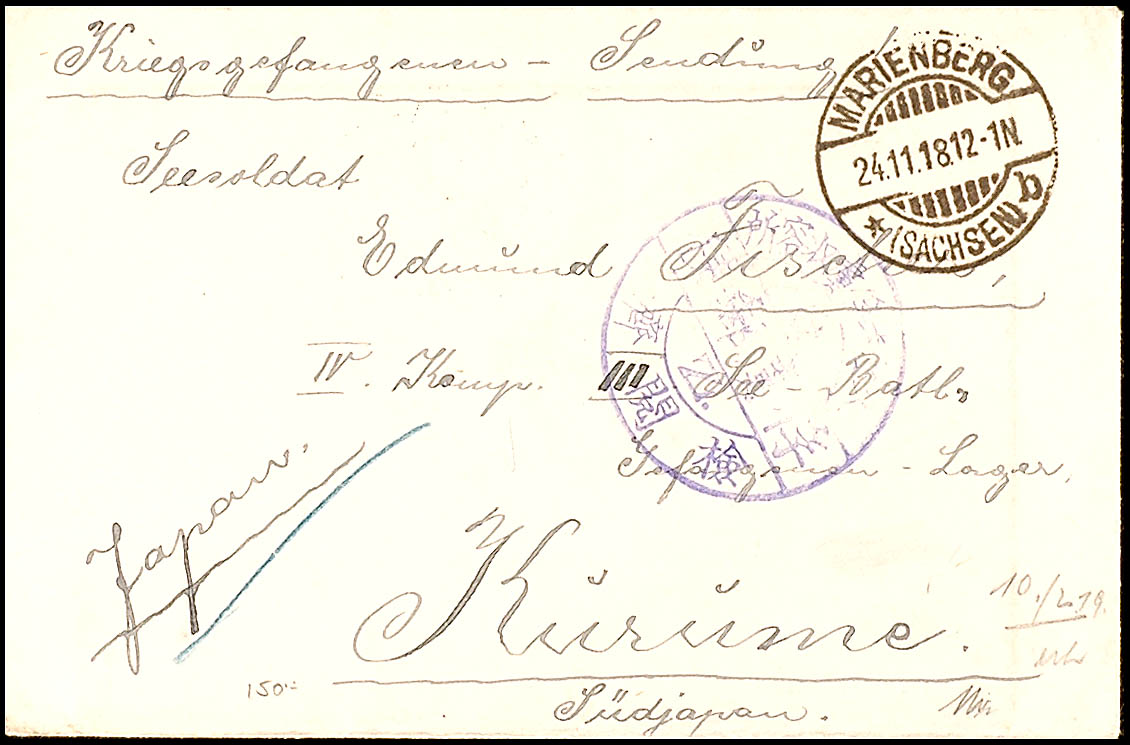 Kriegsgefangenen - Sendung
MARIENBERG
24.11.18.12-1N.
* (SACHSEN) b
Seesoldat
Edmund
IV. Komp. III See - Batl.
Gefangenen - Lager,
Japan.
Kurume.
Südjapan.
検閲
10./2.19.
150.-